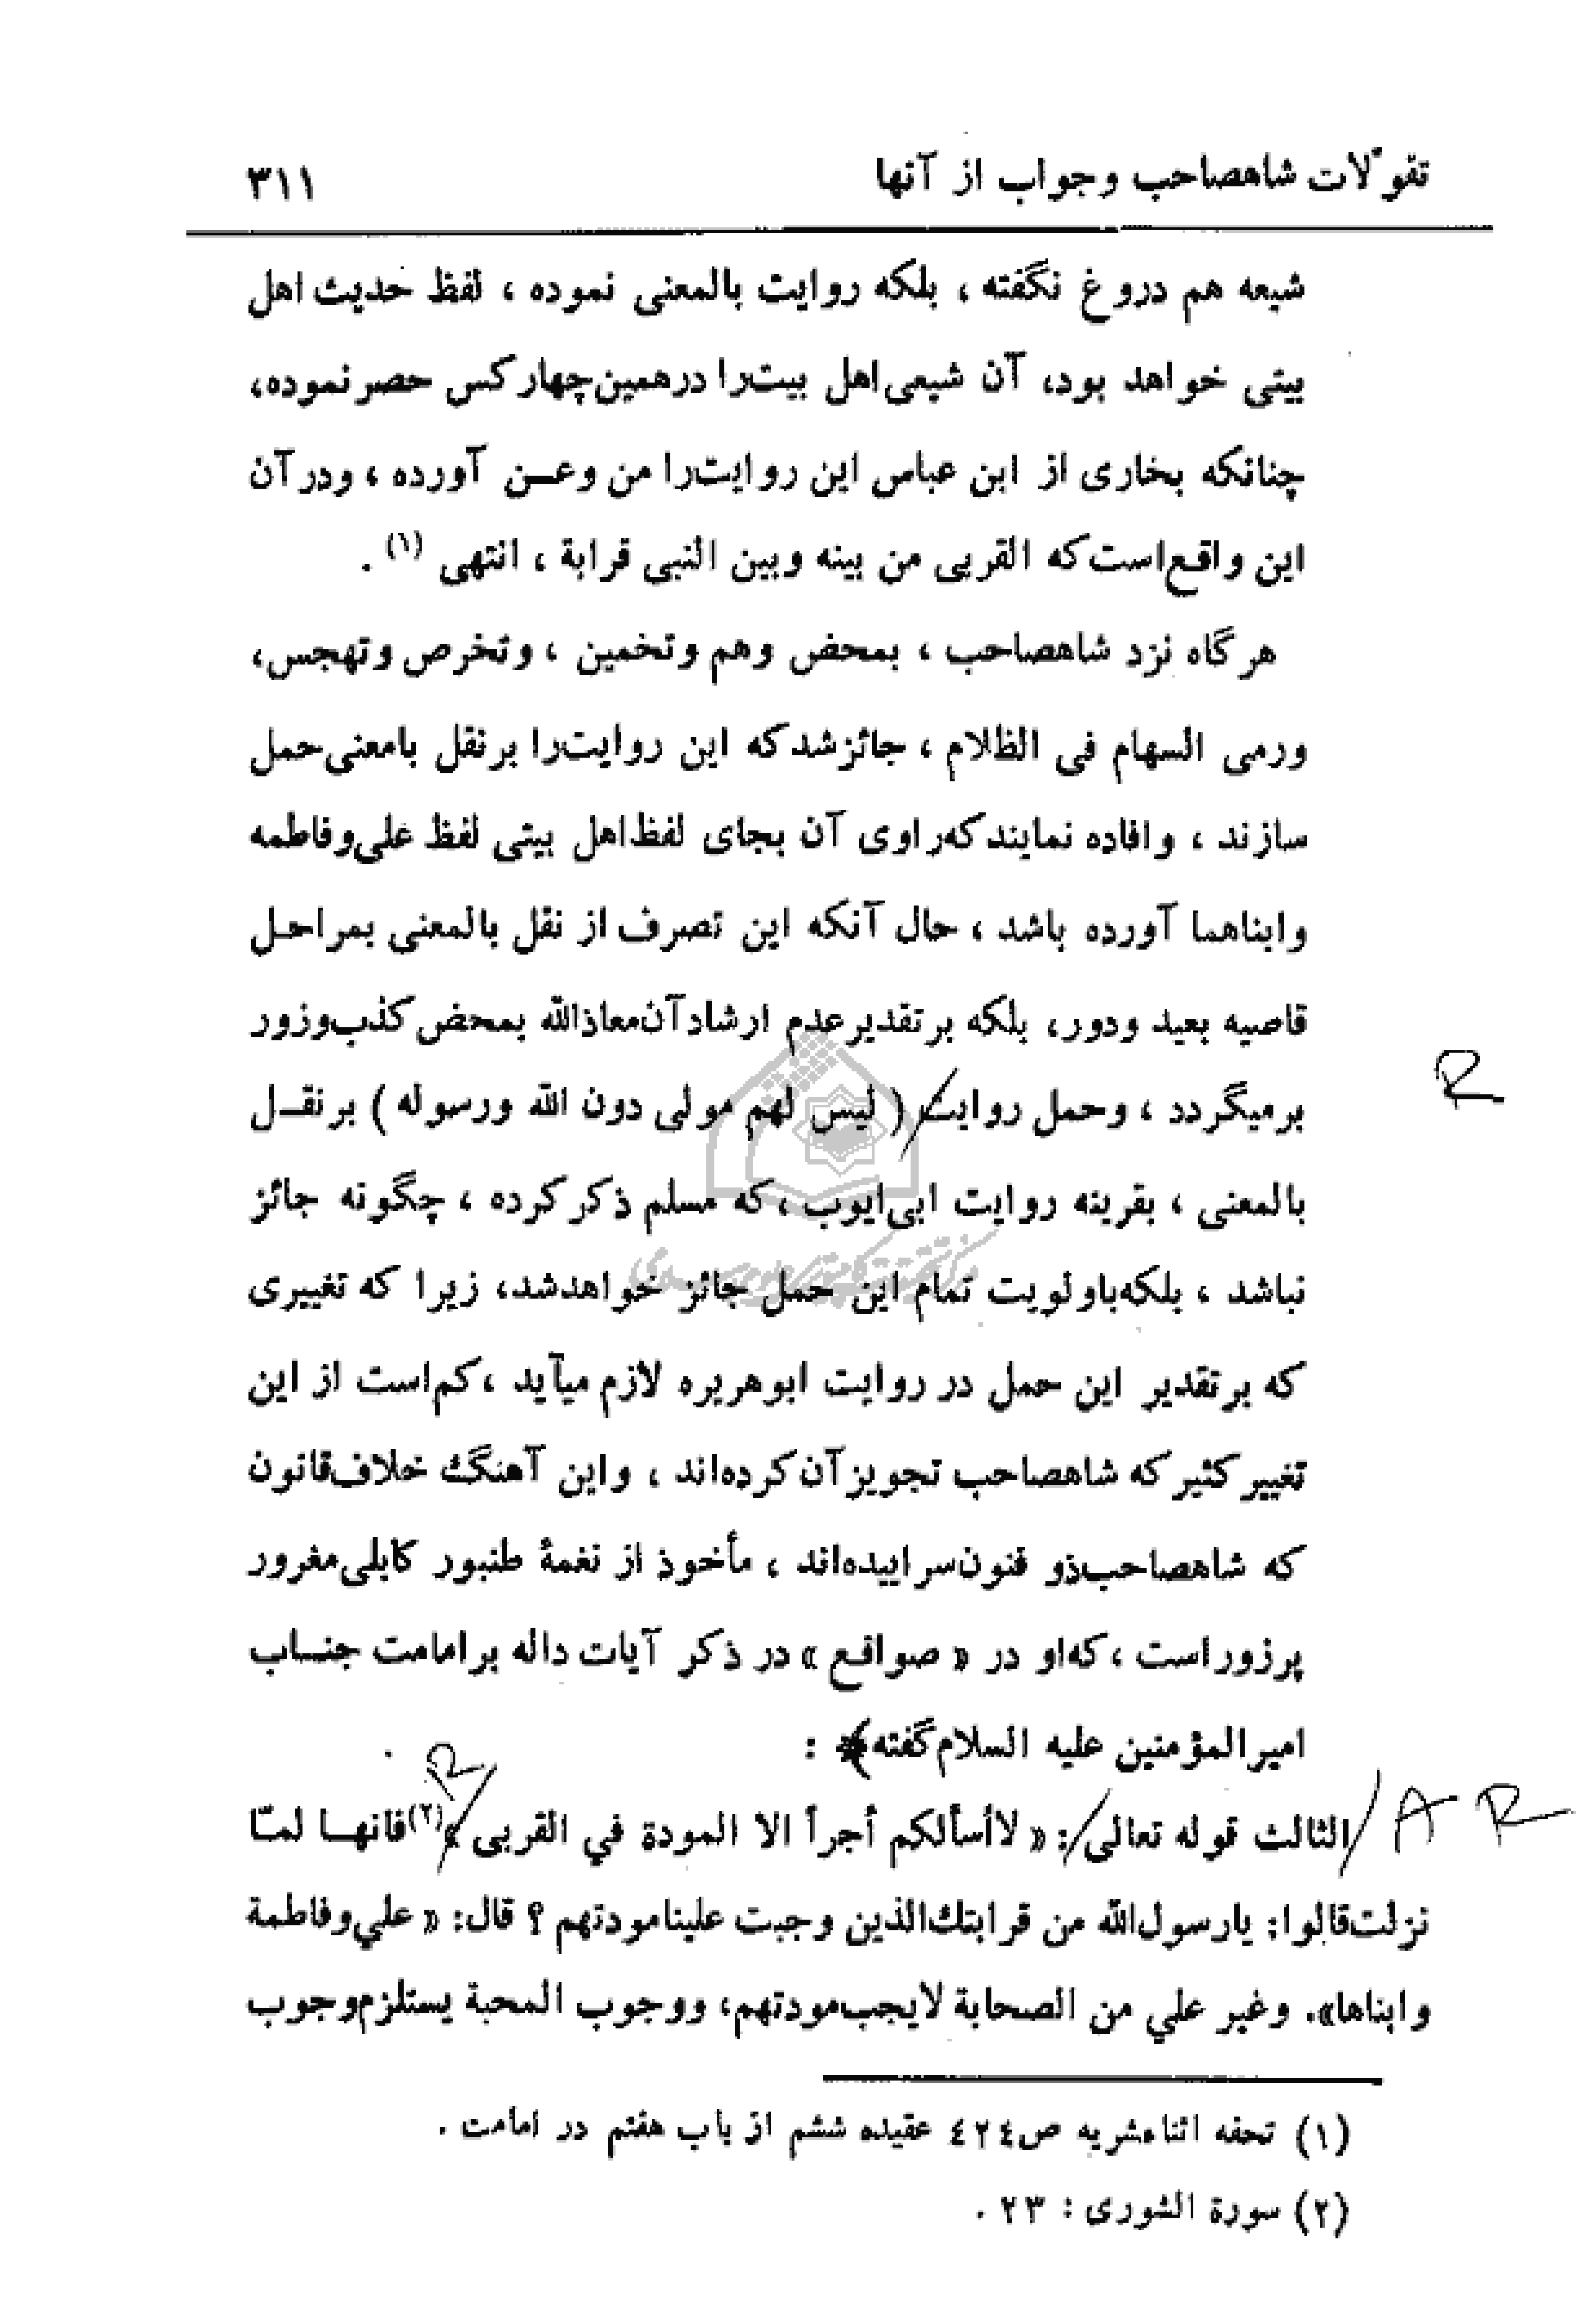 تقوّلات شاهصاحب وجواب از آنها ۳۱۱
شیعه هم دروغ نگفته ، بلکه روایت بالمعنی نموده ، لفظ حدیث اهل
بیتی خواهد بود، آن شیعی اهل بیت را درهمین چهار کس حصر نموده،
چنانکه بخاری از ابن عباس این روایت را من وعن آورده ، ودر آن
این واقع است که القربی من بینه وبین النبی قرابة ، انتهی (۱) .
هرگاه نزد شاهصاحب ، بمحض وهم وتخمین ، وتخرص وتهجس،
ورمی السهام فی الظلام ، جائز شد که این روایت را بر نقل بامعنی حمل
سازند ، وافاده نمایند که راوی آن بجای لفظ اهل بیتی لفظ علی وفاطمه
وابناهما آورده باشد ، حال آنکه این تصرف از نقل بالمعنی بمراحل
قاصیه بعید ودور، بلکه بر تقدیر عدم ارشاد آن معاذالله بمحض کذب وزور
برمیگردد ، وحمل روایت ( لیس لهم مولی دون الله ورسوله ) بر نقل
بالمعنی ، بقرینه روایت ابی ایوب ، که مسلم ذکر کرده ، چگونه جائز
نباشد ، بلکه باولویت تمام این حمل جائز خواهد شد، زیرا که تغییری
که بر تقدیر این حمل در روایت ابوهریره لازم میآید ، کم است از این
تغییر کثیر که شاهصاحب تجویز آن کرده‌اند ، واین آهنگ خلاف قانون
که شاهصاحب ذو فنون سراییده‌اند ، مأخوذ از نغمهٔ طنبور کابلی مغرور
پرزور است ، که او در « صواقع » در ذکر آیات داله بر امامت جناب
امیرالمؤمنین علیه السلام گفته :
R
R
الثالث قوله تعالی : « لاأسألکم أجراً الا المودة في القربی » (۲) فانها لمّا A R
نزلت قالوا: یارسول الله من قرابتك الذین وجبت علینا مودتهم ؟ قال: « علي وفاطمة
وابناها». وغیر علي من الصحابة لایجب مودتهم، ووجوب المحبة یستلزم وجوب
(۱) تحفه اثنا عشریه ص٤٢٤ عقیده ششم از باب هفتم در امامت .
(۲) سورة الشوری : ۲۳ .